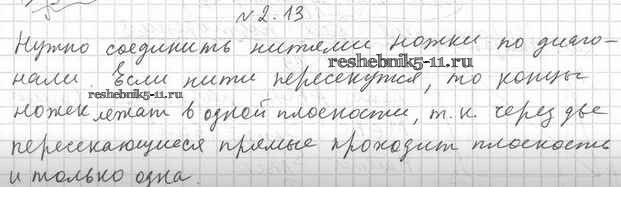 № 2.13
Нужно соединить нитями ножки по диаго-
нали. Если нити пересекутся, то концы
reshebnik5-11.ru
ножек лежат в одной плоскости, т.к. через две
reshebnik5-11.ru
пересекающиеся прямые проходит плоскость
и только одна.